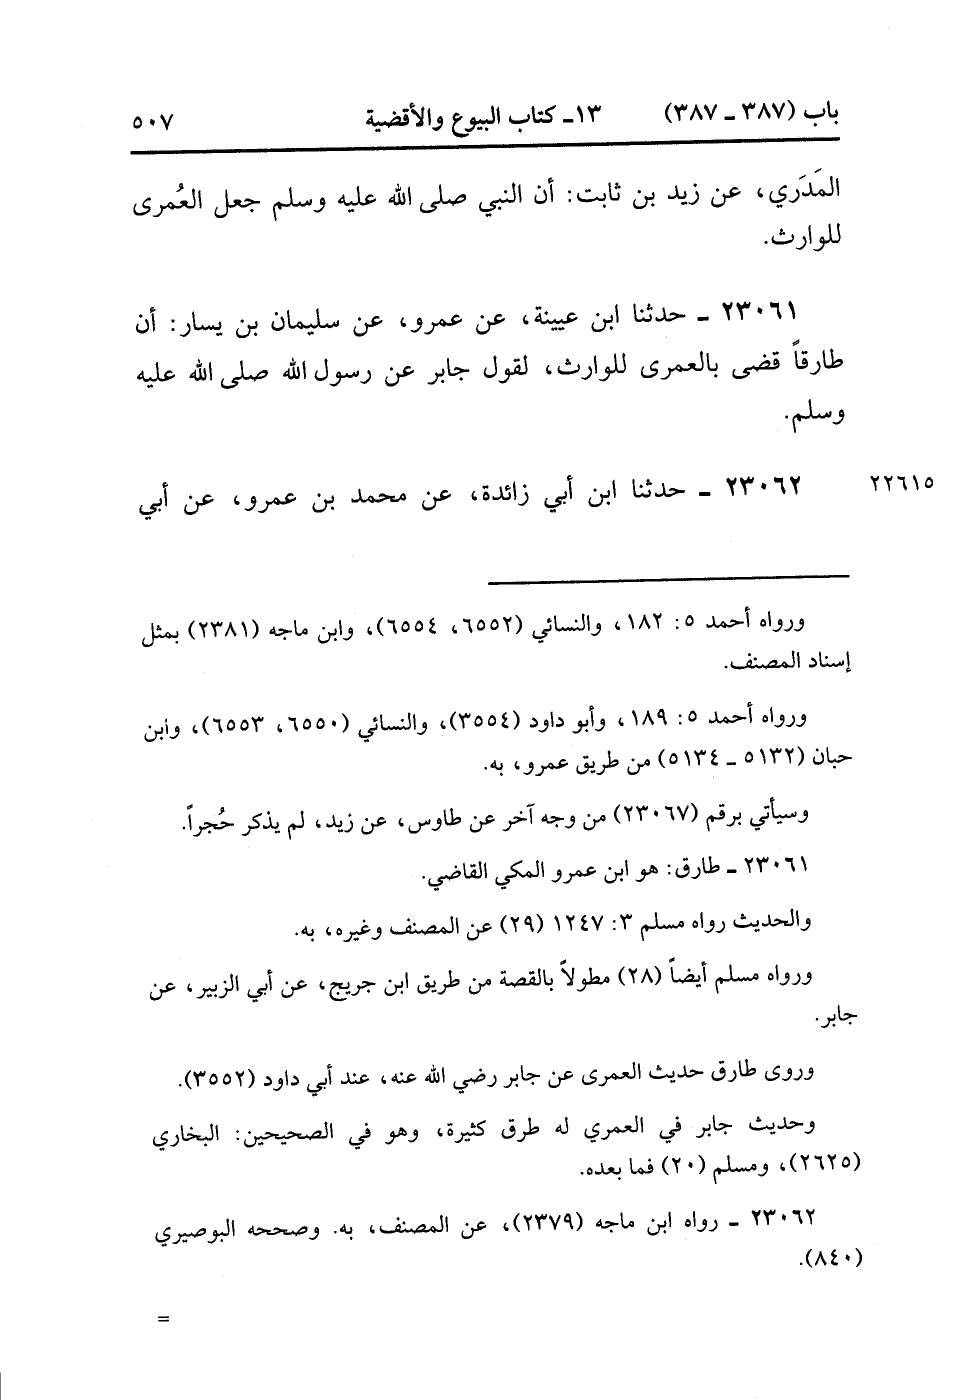 باب (٣٨٧ ـ ٣٨٧) ١٣ـ كتاب البيوع والأقضية ٥٠٧
المَدَري، عن زيد بن ثابت: أن النبي صلى الله عليه وسلم جعل العُمرى
للوارث.
٢٣٠٦١ ـ حدثنا ابن عيينة، عن عمرو، عن سليمان بن يسار: أن
طارقاً قضى بالعمرى للوارث، لقول جابر عن رسول الله صلى الله عليه
وسلم.
٢٢٦١٥ ٢٣٠٦٢ ـ حدثنا ابن أبي زائدة، عن محمد بن عمرو، عن أبي
ورواه أحمد ٥: ١٨٢، والنسائي (٦٥٥٢، ٦٥٥٤)، وابن ماجه (٢٣٨١) بمثل
إسناد المصنف.
ورواه أحمد ٥: ١٨٩، وأبو داود (٣٥٥٤)، والنسائي (٦٥٥٠، ٦٥٥٣)، وابن
حبان (٥١٣٢ ـ ٥١٣٤) من طريق عمرو، به.
وسيأتي برقم (٢٣٠٦٧) من وجه آخر عن طاوس، عن زيد، لم يذكر حُجراً.
٢٣٠٦١ ـ طارق: هو ابن عمرو المكي القاضي.
والحديث رواه مسلم ٣: ١٢٤٧ (٢٩) عن المصنف وغيره، به.
ورواه مسلم أيضاً (٢٨) مطولاً بالقصة من طريق ابن جريج، عن أبي الزبير، عن
جابر.
وروى طارق حديث العمرى عن جابر رضي الله عنه، عند أبي داود (٣٥٥٢).
وحديث جابر في العمري له طرق كثيرة، وهو في الصحيحين: البخاري
(٢٦٢٥)، ومسلم (٢٠) فما بعده.
٢٣٠٦٢ ـ رواه ابن ماجه (٢٣٧٩)، عن المصنف، به. وصححه البوصيري
(٨٤٠).
=